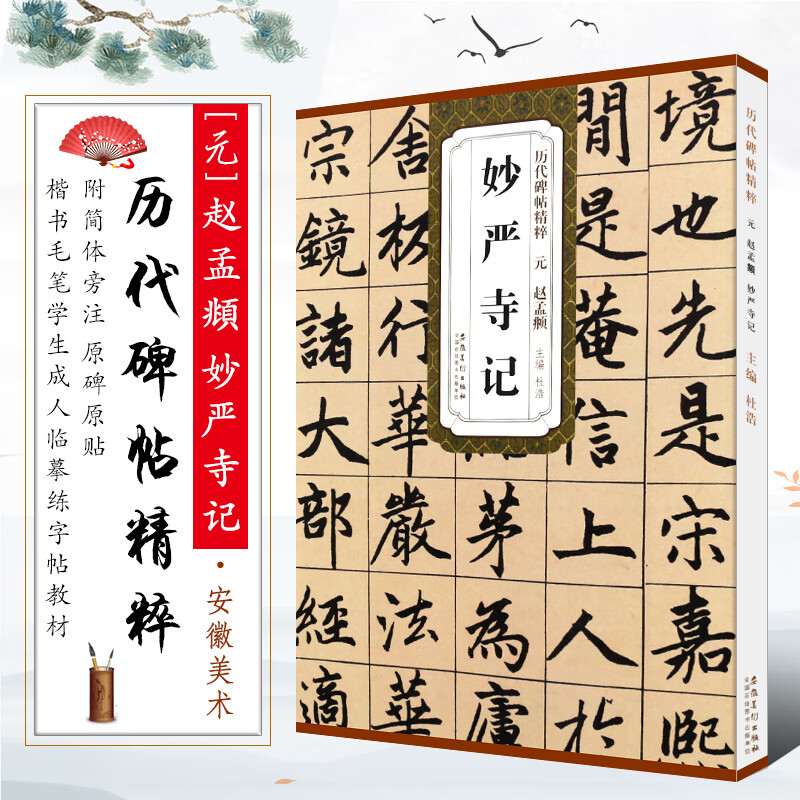 [元]赵孟頫 妙严寺记·安徽美术
历代碑帖精粹
附简体旁注 原碑原贴
楷书毛笔学生成人临摹练字帖教材
历代碑帖精粹 元 赵孟頫
主编 杜浩
妙严寺记
安徽美术出版社
全国百佳图书出版单位
境也先是宋嘉熙
間是菴信上人於
茅為廬
舍板行華嚴法華
宗鏡諸大部經適
历代碑帖精粹 元 赵孟頫 妙严寺记 主编 杜浩
安徽美术出版社
全国百佳图书出版单位